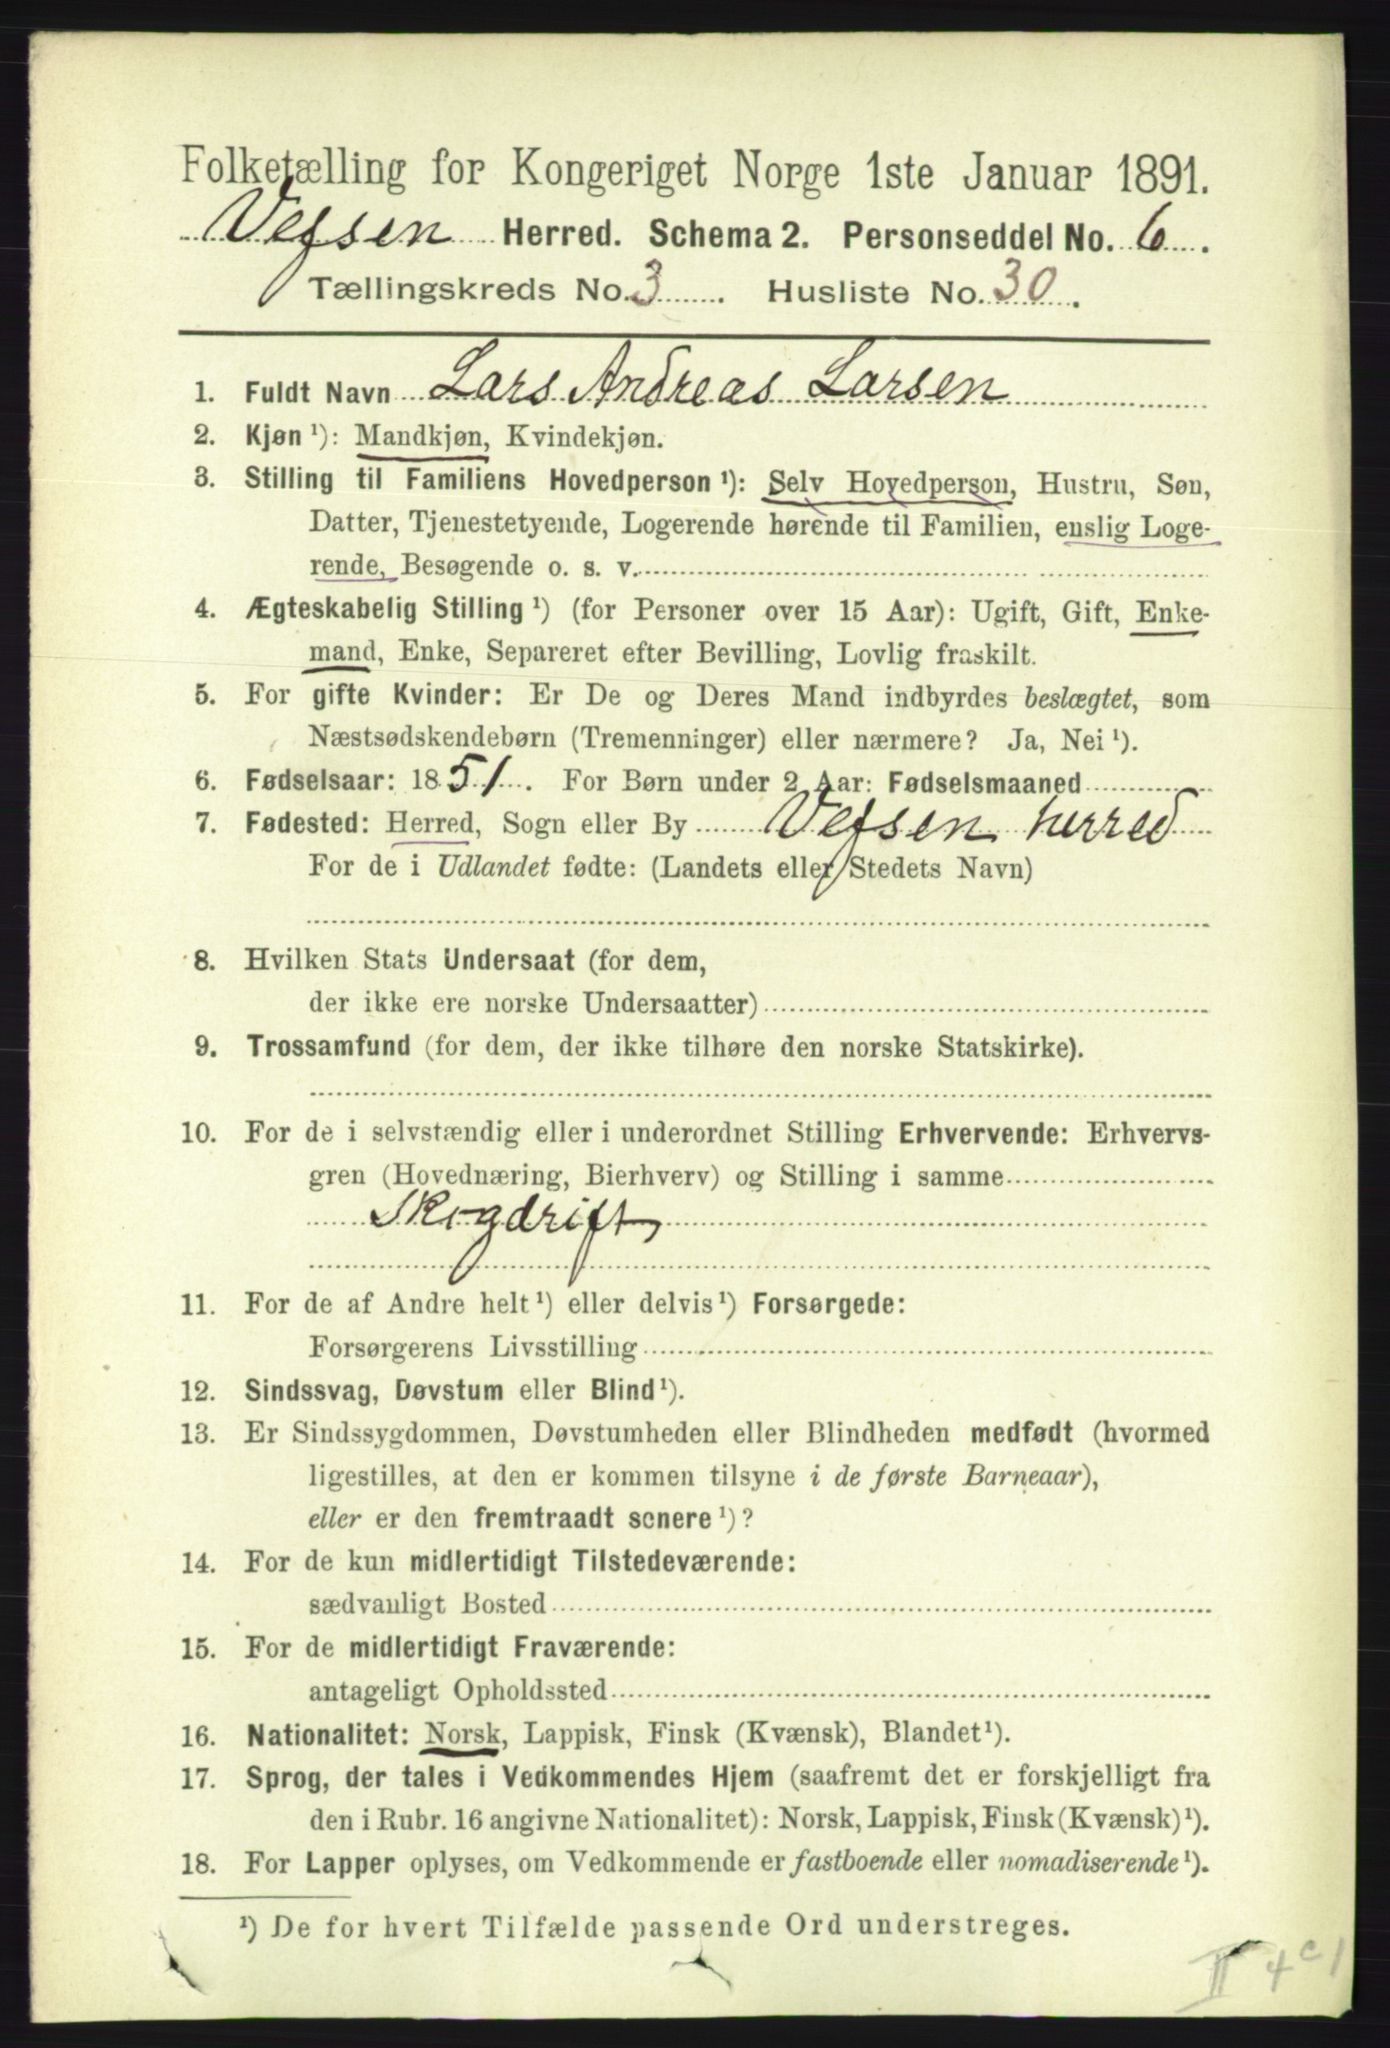 Folketælling for Kongeriget Norge 1ste Januar 1891.
Vefsen Herred. Schema 2. Personseddel No. 6.
Tællingskreds No. 3. Husliste No. 30.
1. Fuldt Navn Lars Andreas Larsen
2. Kjøn ¹): Mandkjøn, Kvindekjøn.
3. Stilling til Familiens Hovedperson ¹): Selv Hovedperson, Hustru, Søn,
Datter, Tjenestetyende, Logerende hørende til Familien, enslig Loge-
rende, Besøgende o. s. v.
4. Ægteskabelig Stilling ¹) (for Personer over 15 Aar): Ugift, Gift, Enke-
mand, Enke, Separeret efter Bevilling, Lovlig fraskilt.
5. For gifte Kvinder: Er De og Deres Mand indbyrdes beslægtet, som
Næstsødskendebørn (Tremenninger) eller nærmere? Ja, Nei ¹).
6. Fødselsaar: 1851. For Børn under 2 Aar: Fødselsmaaned
7. Fødested: Herred, Sogn eller By Vefsen herred
For de i Udlandet fødte: (Landets eller Stedets Navn)
8. Hvilken Stats Undersaat (for dem,
der ikke ere norske Undersaatter)
9. Trossamfund (for dem, der ikke tilhøre den norske Statskirke).
10. For de i selvstændig eller i underordnet Stilling Erhvervende: Erhvervs-
gren (Hovednæring, Bierhverv) og Stilling i samme
Skogdrift
11. For de af Andre helt ¹) eller delvis ¹) Forsørgede:
Forsørgerens Livsstilling
12. Sindssvag, Døvstum eller Blind ¹).
13. Er Sindssygdommen, Døvstumheden eller Blindheden medfødt (hvormed
ligestilles, at den er kommen tilsyne i de første Barneaar),
eller er den fremtraadt senere ¹)?
14. For de kun midlertidigt Tilstedeværende:
sædvanligt Bosted
15. For de midlertidigt Fraværende:
antageligt Opholdssted
16. Nationalitet: Norsk, Lappisk, Finsk (Kvænsk), Blandet ¹).
17. Sprog, der tales i Vedkommendes Hjem (saafremt det er forskjelligt fra
den i Rubr. 16 angivne Nationalitet): Norsk, Lappisk, Finsk (Kvænsk) ¹).
18. For Lapper oplyses, om Vedkommende er fastboende eller nomadiserende ¹).
¹) De for hvert Tilfælde passende Ord understreges.
II 4 c 1